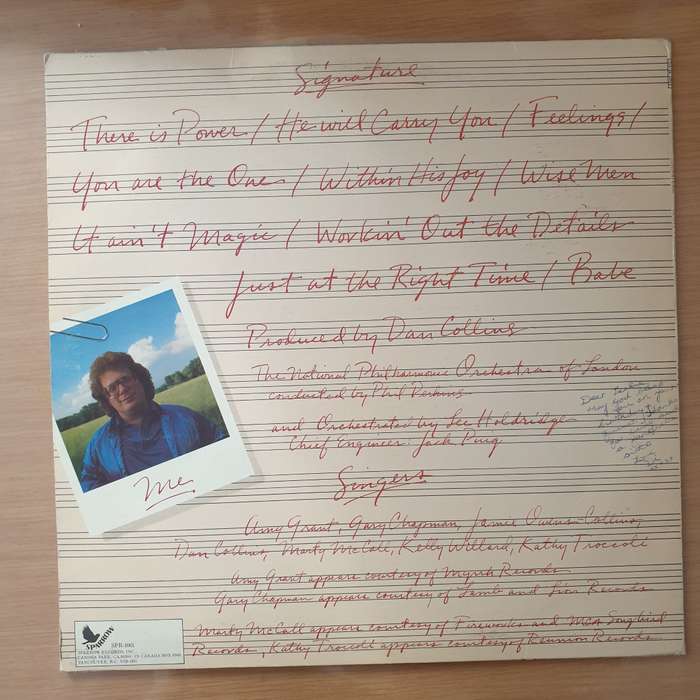 Signature
There is Power / He will Carry You / Feelings /
You are the One / Within His Joy / Wise Men
It ain't Magic / Workin' Out the Details
Just at the Right Time / Babe
Produced by Dan Collins
The National Philharmonic Orchestra of London
conducted by Phil Perkins
and Orchestrated by Lee Holdridge
Chief Engineer: Jack Puig
Me
Singers
Amy Grant, Gary Chapman, Jamie Owens-Collins,
Dan Collins, Marty McCall, Kelly Willard, Kathy Troccoli
Amy Grant appears courtesy of Myrrh Records
Gary Chapman appears courtesy of Lamb and Lion Records
Marty McCall appears courtesy of Fireworks and MCA Songbird
Records, Kathy Troccoli appears courtesy of Reunion Records
SPARROW
SPARROW RECORDS, INC.
CANOGA PARK, CA
VANCOUVER, B.C.